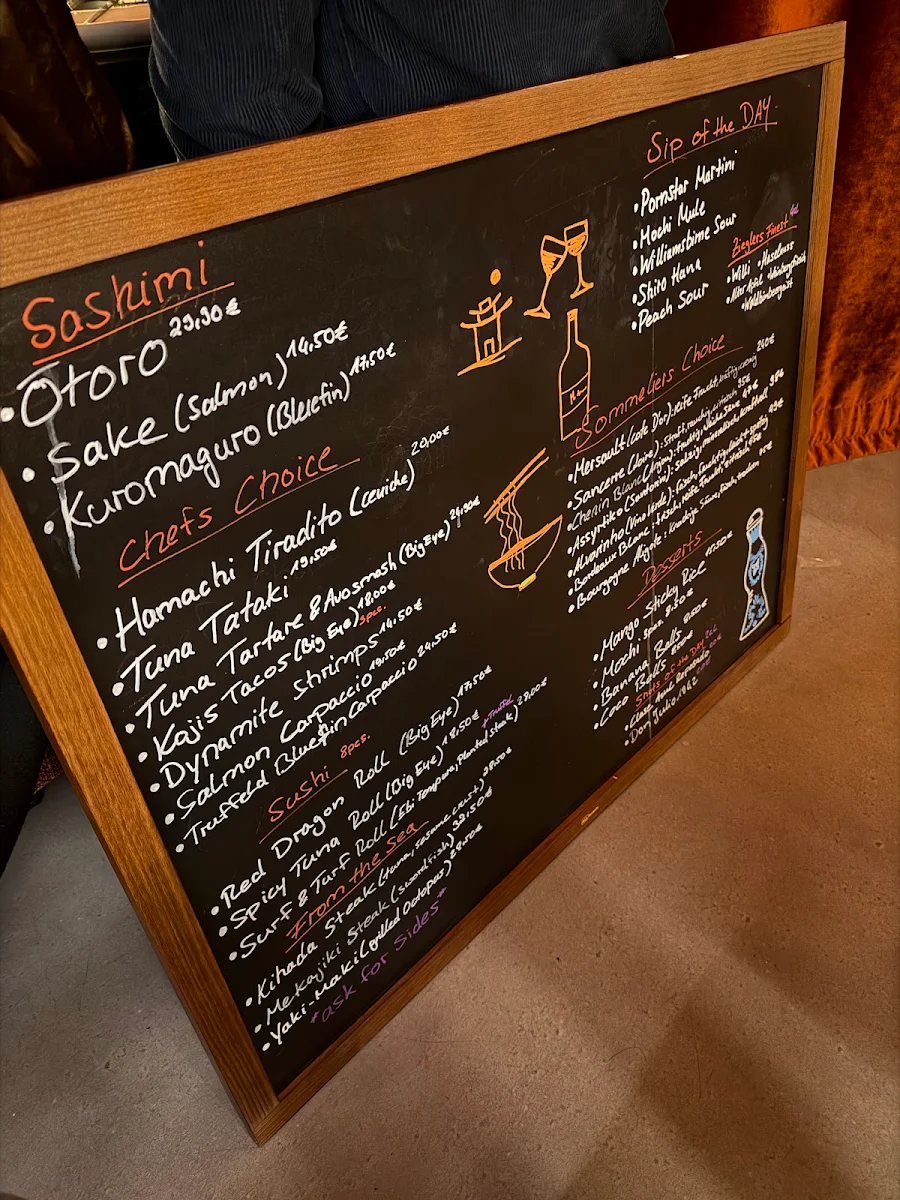 Sashimi
• Otoro 29,90€
• Sake (Salmon) 14,50€
• Kuromaguro (Bluefin) 17,50€
Chefs Choice
• Hamachi Tiradito (ceviche) 20,00€
• Tuna Tataki 19,50€
• Tuna Tartare & Avosmash (BigEye) 24,90€
• Kajis Tacos (Big Eye) 18,00€ 3pcs.
• Dynamite Shrimps 14,50€
• Salmon Carpaccio 19,50€
• Truffeld Bluefin Carpaccio 24,50€
Sushi 8pcs.
• Red Dragon Roll (Big Eye) 17,50€
• Spicy Tuna Roll (Big Eye) 18,50€
• Surf & Turf Roll (Ebi Tempura, Planted Steak) 28,00€
From the sea
• Kihada Steak (tuna, sesame crust)
• Mekajiki Steak (Swordfish)
• Yaki-Maki (grilled Octopus)
*ask for Sides*
Sip of the DAY
• Pornstar Martini
• Mochi Mule
• Williamsbirne Sour
• Shiro Hana
• Peach Sour
Zieglers Finest
• Willi • Haselnuss
• Alter Apfel
• Waldhimbeergeist
Sommeliers Choice
• Mersault (Cote D'or):
• Sancerre (Loire):
• Chenin Blanc
• Assyrtiko (Santorin):
• Alvarinho (Vino Verde):
• Bordeaux Blanc:
• Bourgogne Aligote:
Desserts
• Mango Sticky Rice
• Mochi
• Banana Balls
• Coco Balls
Shots of the DAY
• Clase Azul Reposado
• Don Julio 1942